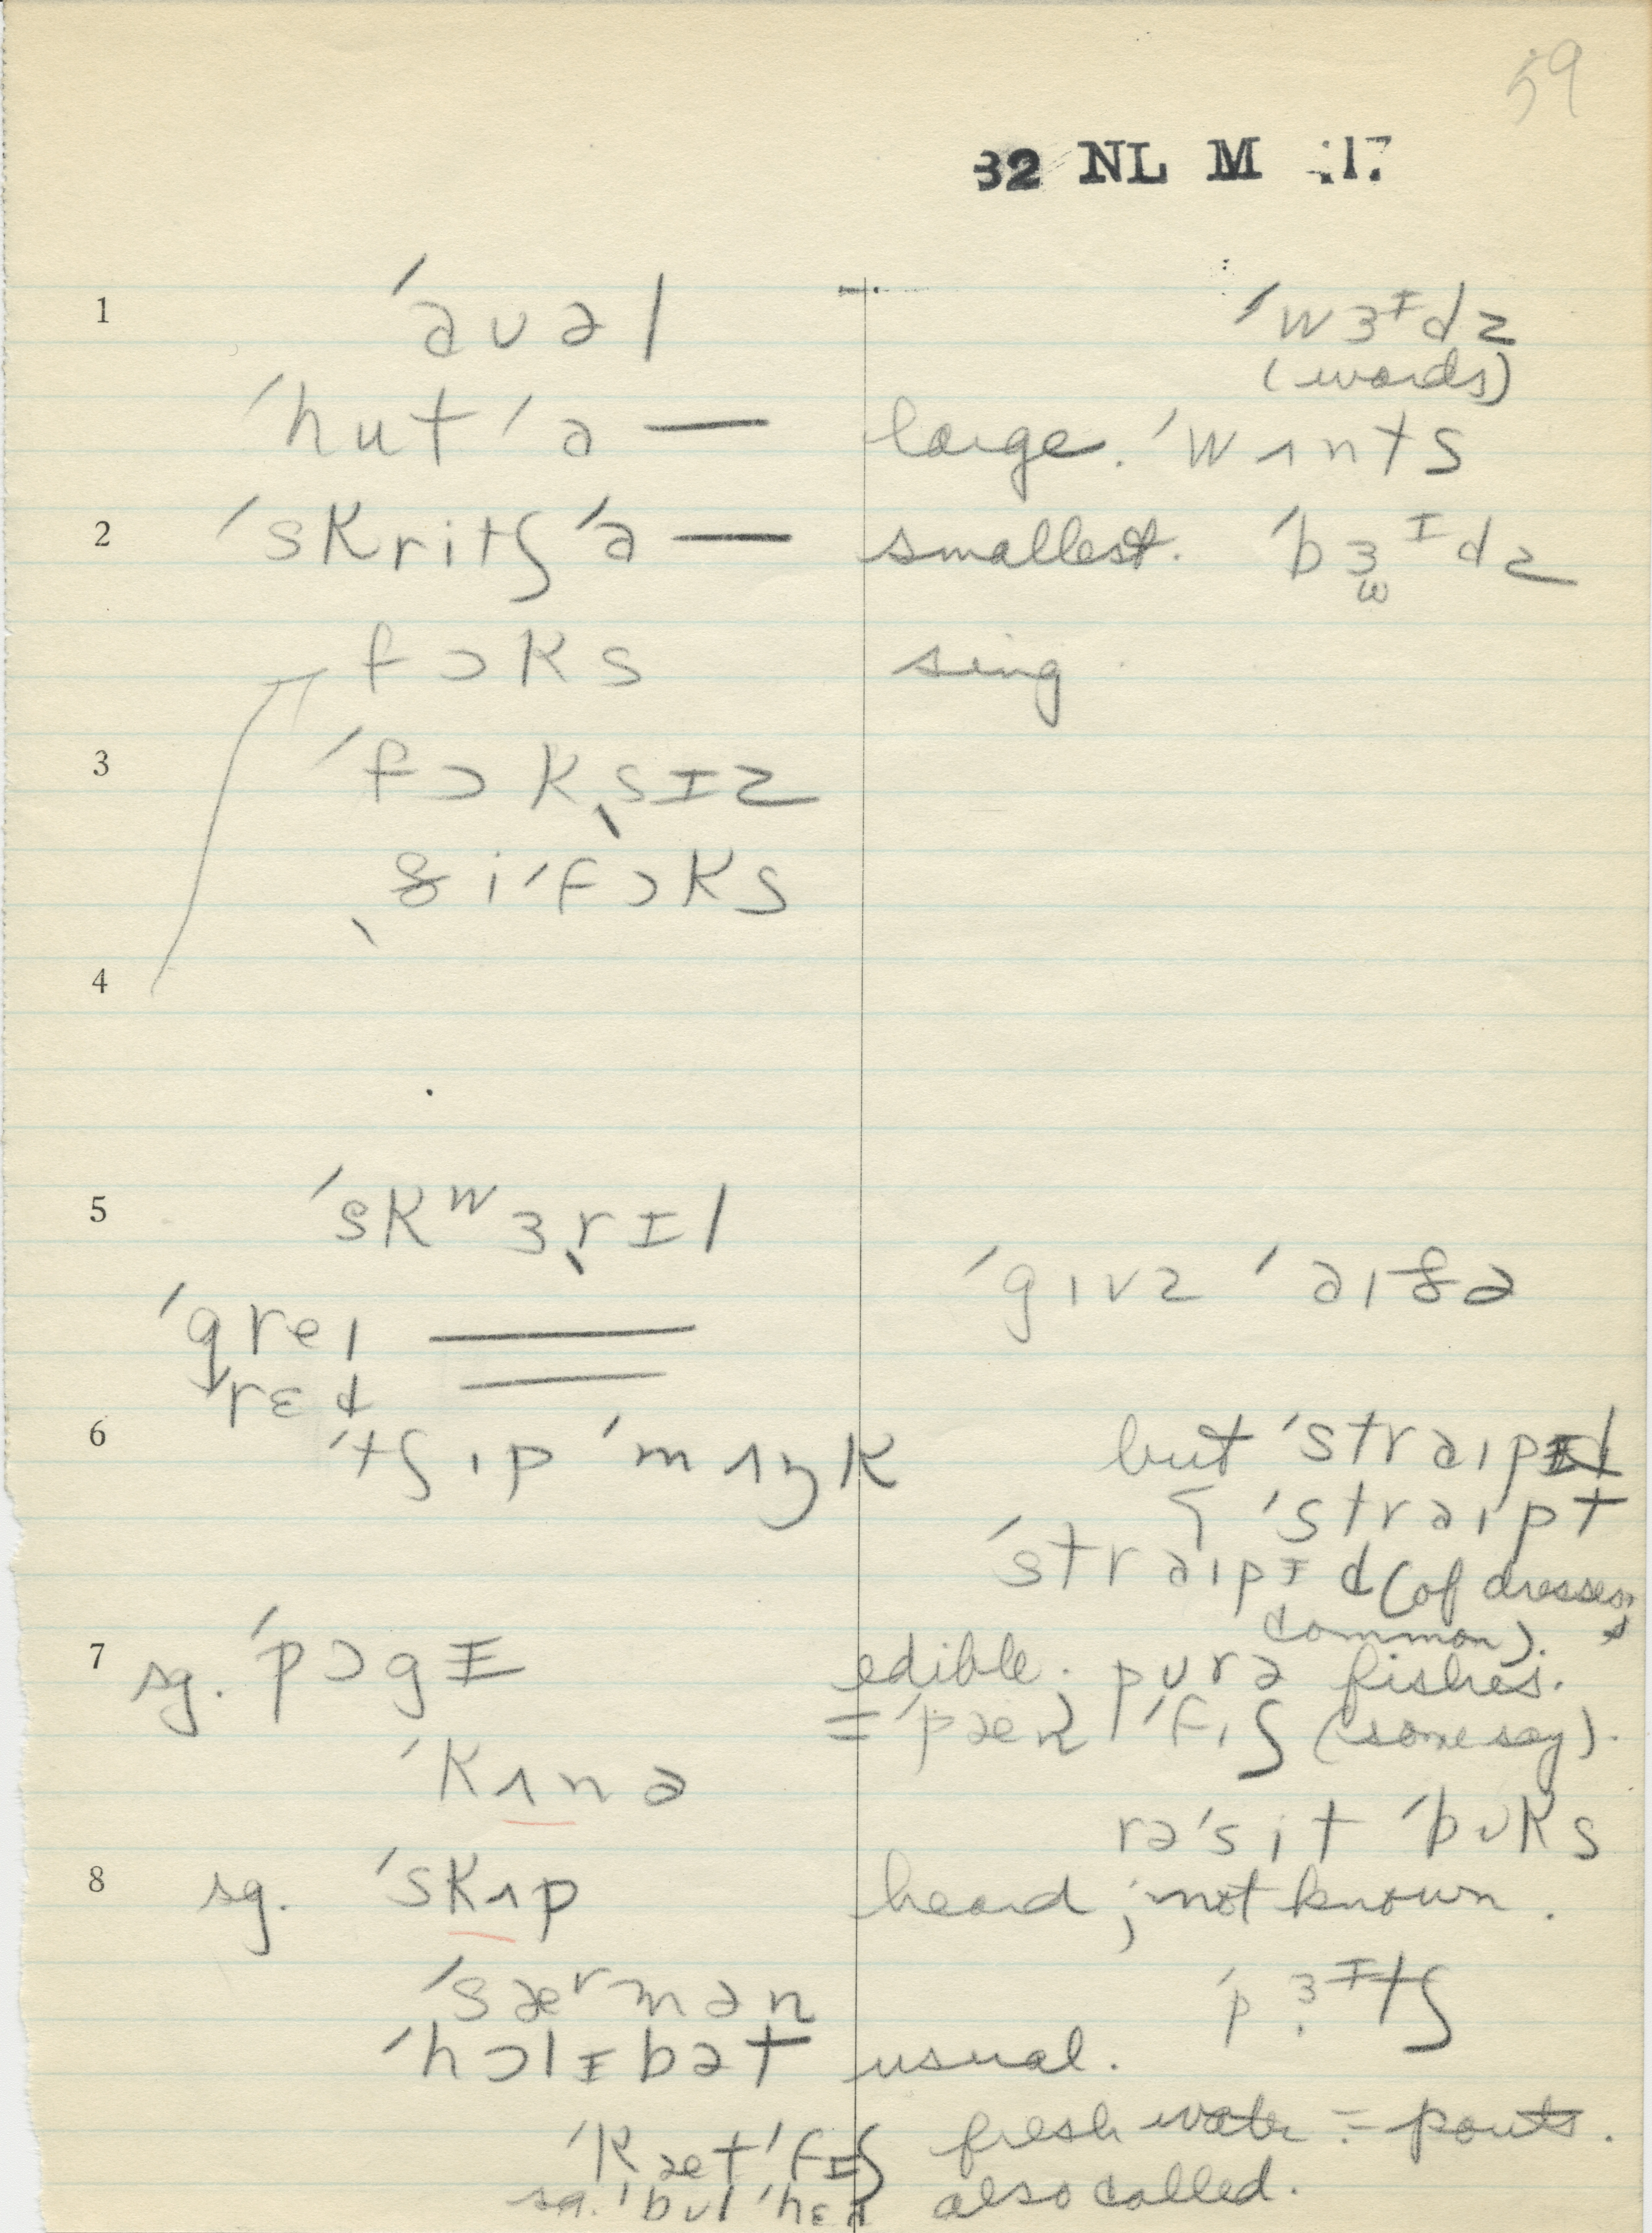 59
32 NL M 17
1 ˈaʊəl ˈwɜᶦdz
(words)
ˈhutˈa — large. ˈwɪnts
2 ˈskritʃˈa — smallest. ˈbɜᶦdz
ω
fɔks sing
3 ˈfɔksɪz
ðiˈfɔks
4
5 ˈskʷɜrɪl
ˈgɪvz ˈaɪðə
ˈgreɪ ——
rɛd ——
6 ˈtʃɪp ˈmʌŋk but ˈstraɪpɪd
ˈstraɪpt
ˈstraɪpɪd (of dresses,
common).
7 sg. ˈpɔgɪ edible. pʊrə fishes.
= ˈpænˈfɪʃ (some say).
ˈkʌnə
rəˈsit ˈbʊks
8 sg. ˈskʌp heard; not known.
ˈsæʳmən ˈpɜᶦtʃ
ˈhɔlɪbət usual.
ˈkætˈfɪʃ fresh water = pouts.
sg. ˈbʊlˈhɛd also called.